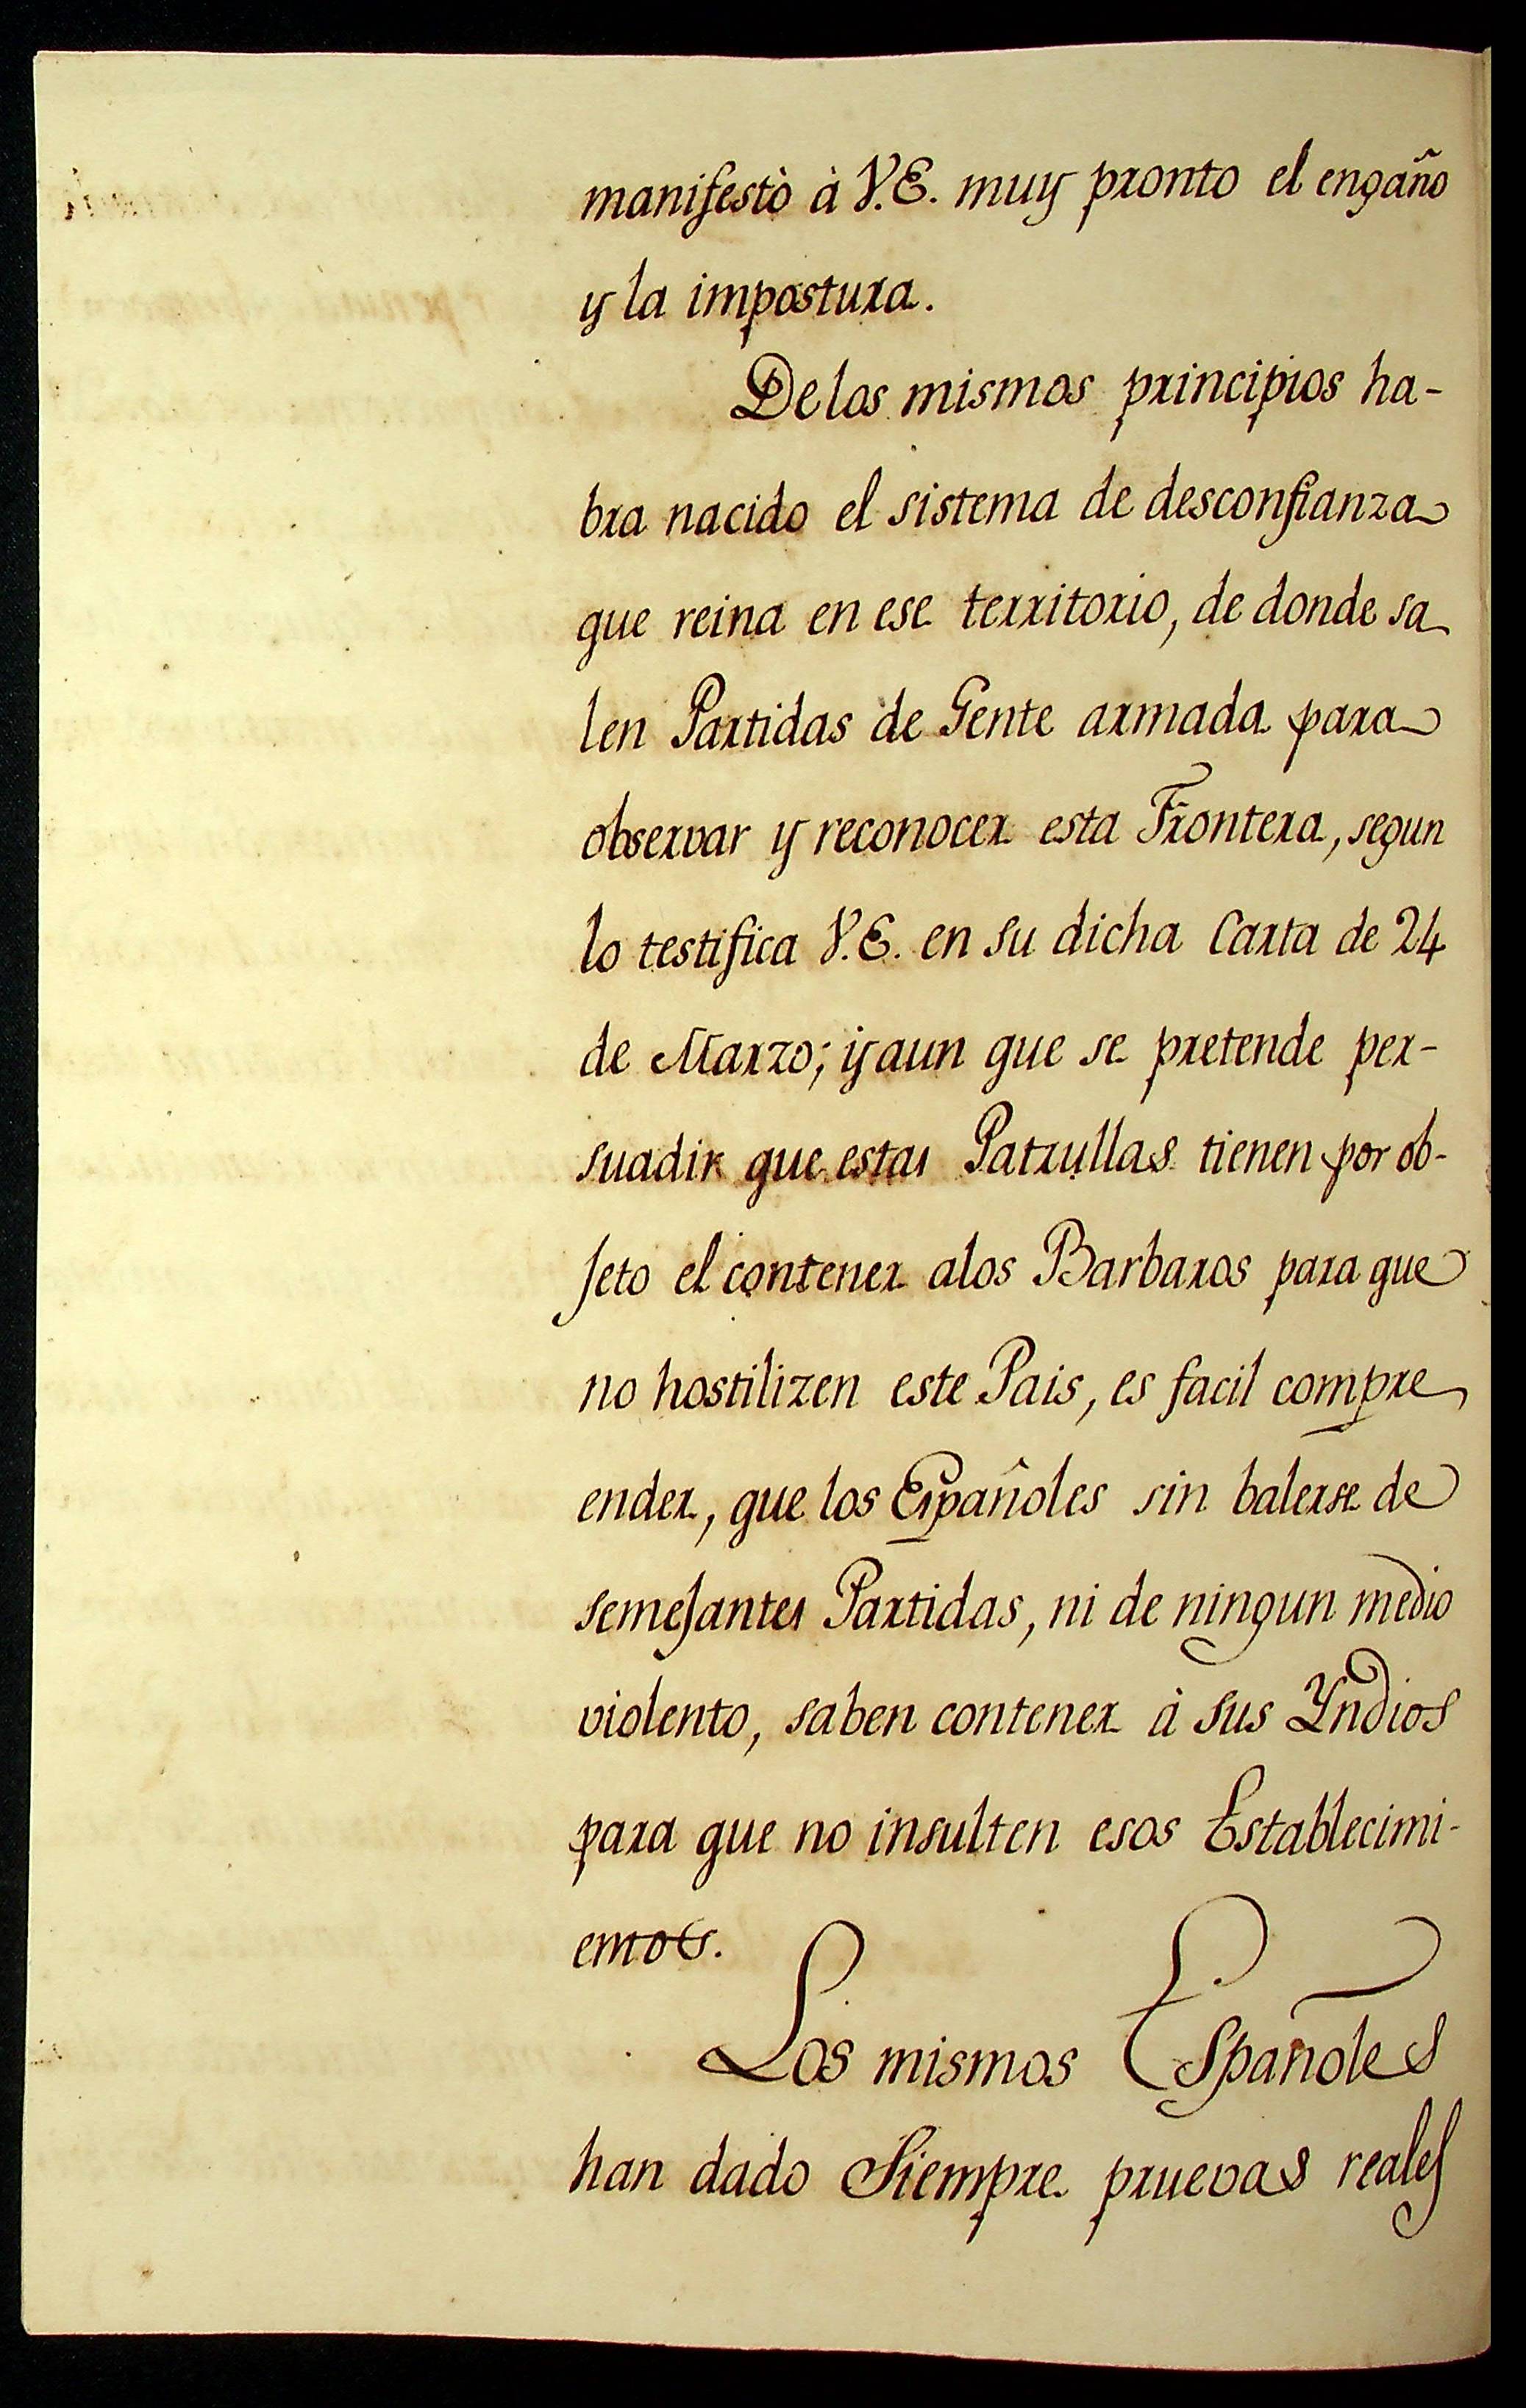 manifestò à V.E. muy pronto el engaño
y la impostura.
De los mismos principios ha-
bra nacido el sistema de desconfianza
que reina en ese territorio, de donde sa
len Partidas de Gente armada para
observar y reconocer esta Frontera, segun
lo testifica V.E. en su dicha Carta de 24
de Marzo; y aun que se pretende per-
suadir que estas Patrullas tienen por ob-
jeto el contener alos Barbaros para que
no hostilizen este Pais, es facil compre
ender, que los Españoles sin balerse de
semejantes Partidas, ni de ningun medio
violento, saben contener à sus Yndios
para que no insulten esos Establecimi-
entos.
Los mismos Españoles
han dado Siempre pruevas reales